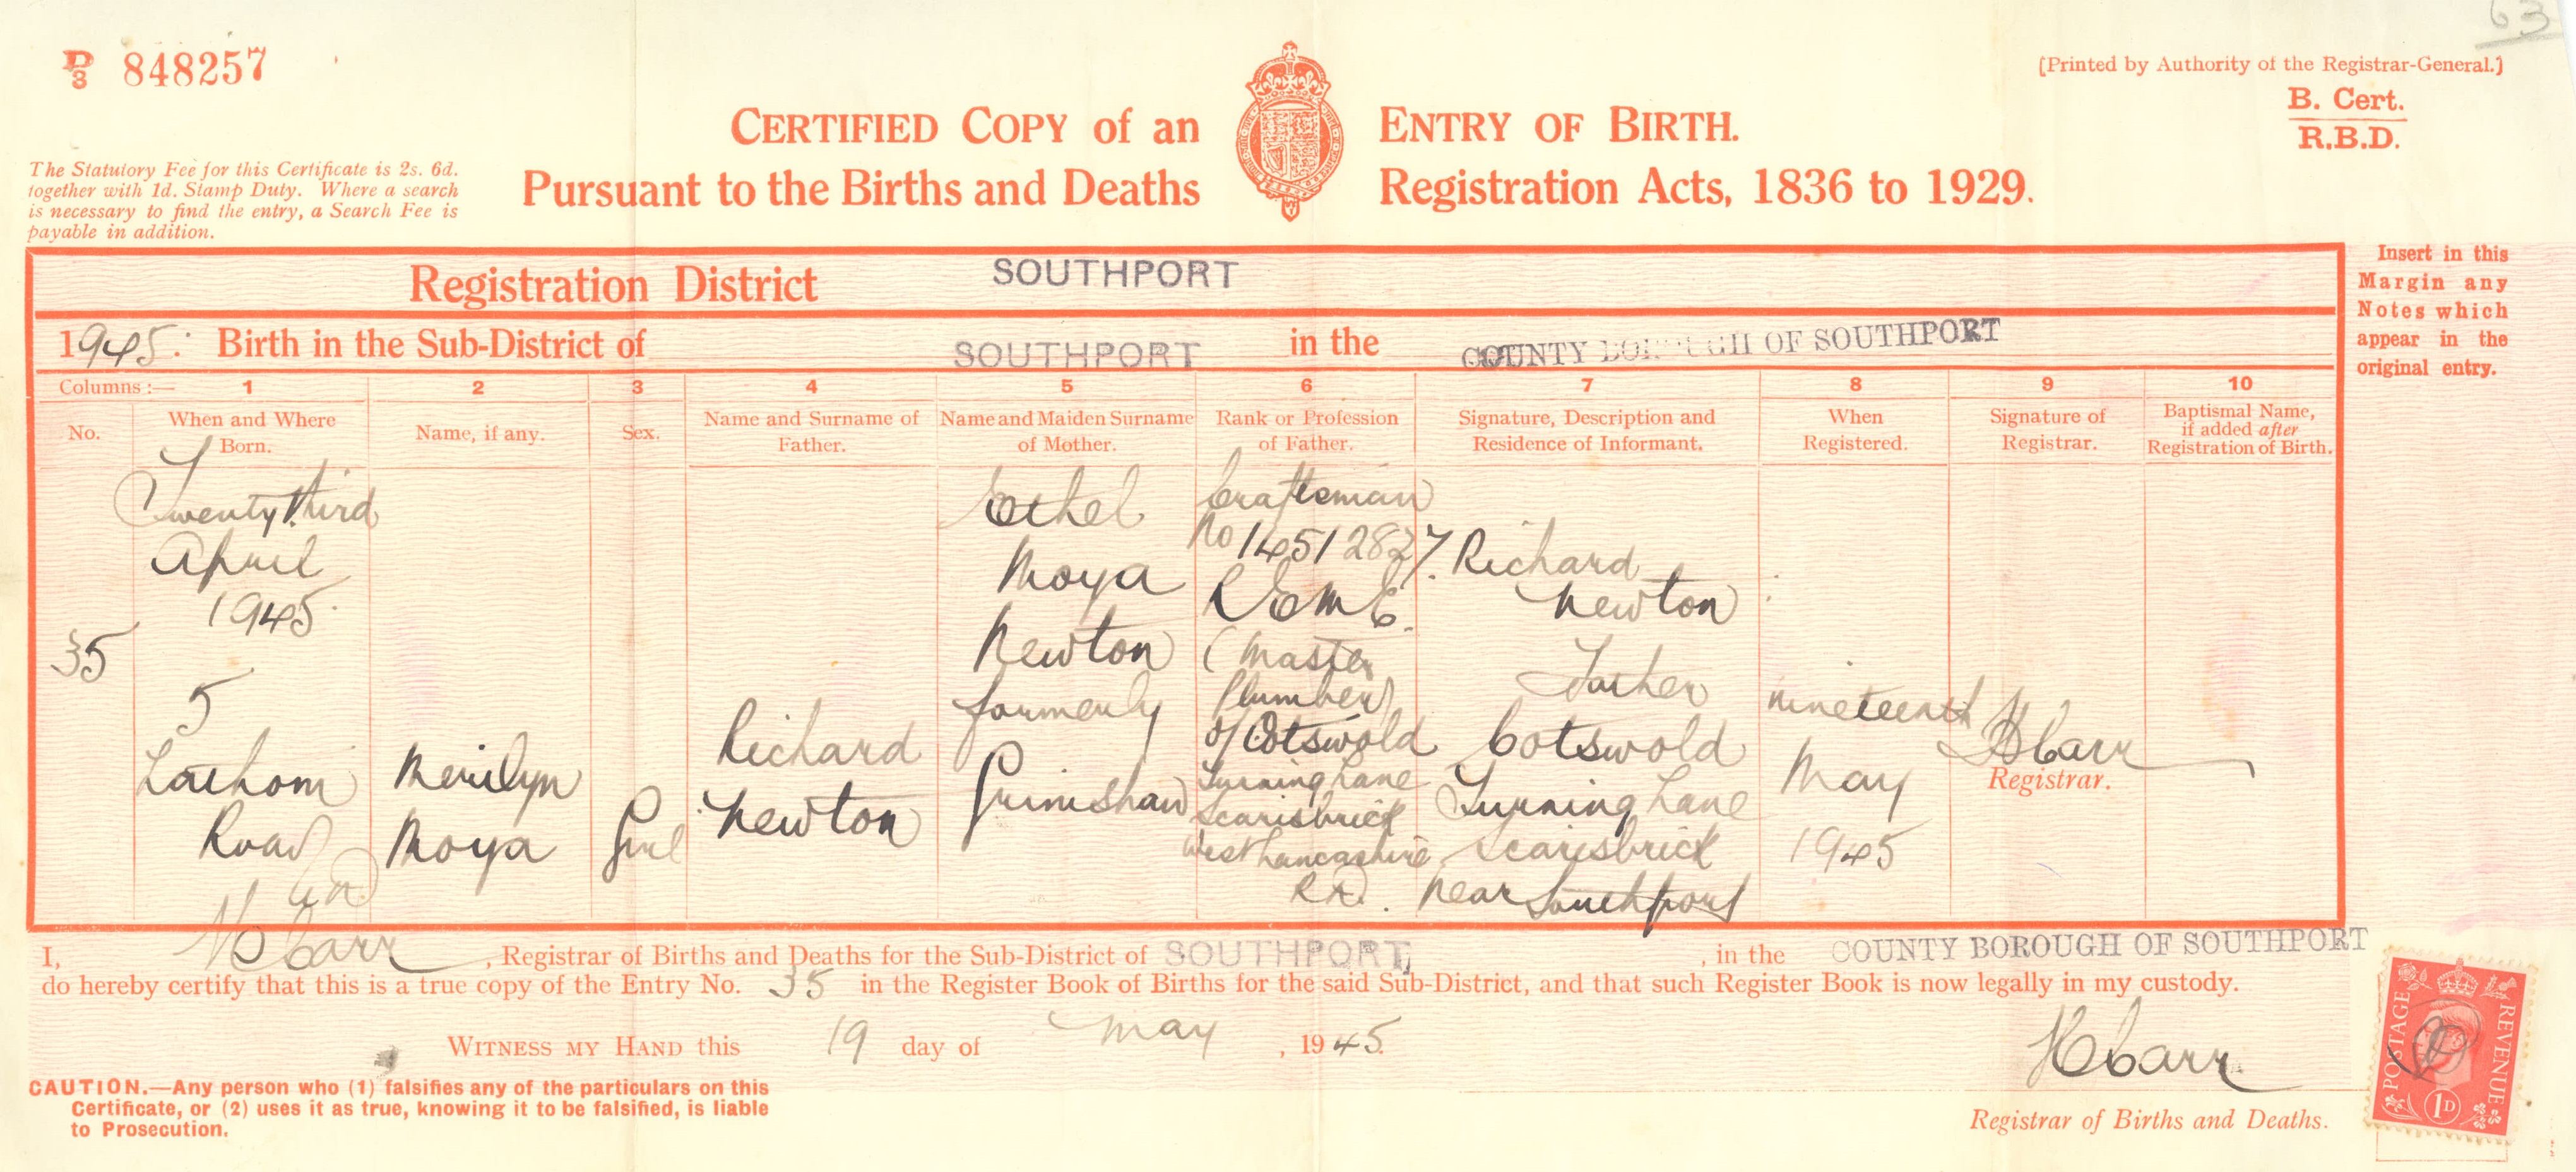 63
B
3
848257
[Printed by Authority of the Registrar-General.]
B. Cert.
R.B.D.
CERTIFIED COPY of an ENTRY OF BIRTH.
Pursuant to the Births and Deaths Registration Acts, 1836 to 1929.
The Statutory Fee for this Certificate is 2s. 6d.
together with 1d. Stamp Duty. Where a search
is necessary to find the entry, a Search Fee is
payable in addition.
Registration District SOUTHPORT
1945. Birth in the Sub-District of SOUTHPORT in the COUNTY BOROUGH OF SOUTHPORT
Insert in this
Margin any
Notes which
appear in the
original entry.
Columns :— 1 2 3 4 5 6 7 8 9 10
No.
When and Where
Born.
Name, if any.
Sex.
Name and Surname of
Father.
Name and Maiden Surname
of Mother.
Rank or Profession
of Father.
Signature, Description and
Residence of Informant.
When
Registered.
Signature of
Registrar.
Baptismal Name,
if added after
Registration of Birth.
35
Twenty third
April
1945
5
Lathom
Road
Merilyn
Moya
Girl
Richard
Newton
Ethel
Moya
Newton
formerly
Grimshaw
Craftsman
No 14512827
R E M E.
(Master
Plumber)
of Cotswold
Turning Lane
Scarisbrick
West Lancashire
R.D.
Richard
Newton
Father
Cotswold
Turning Lane
Scarisbrick
near Southport
nineteenth
May
1945
H Carr
Registrar.
I, H Carr, Registrar of Births and Deaths for the Sub-District of SOUTHPORT, in the COUNTY BOROUGH OF SOUTHPORT
do hereby certify that this is a true copy of the Entry No. 35 in the Register Book of Births for the said Sub-District, and that such Register Book is now legally in my custody.
WITNESS MY HAND this 19 day of May, 1945.
H Carr
Registrar of Births and Deaths.
CAUTION.—Any person who (1) falsifies any of the particulars on this
Certificate, or (2) uses it as true, knowing it to be falsified, is liable
to Prosecution.
POSTAGE
REVENUE
1D